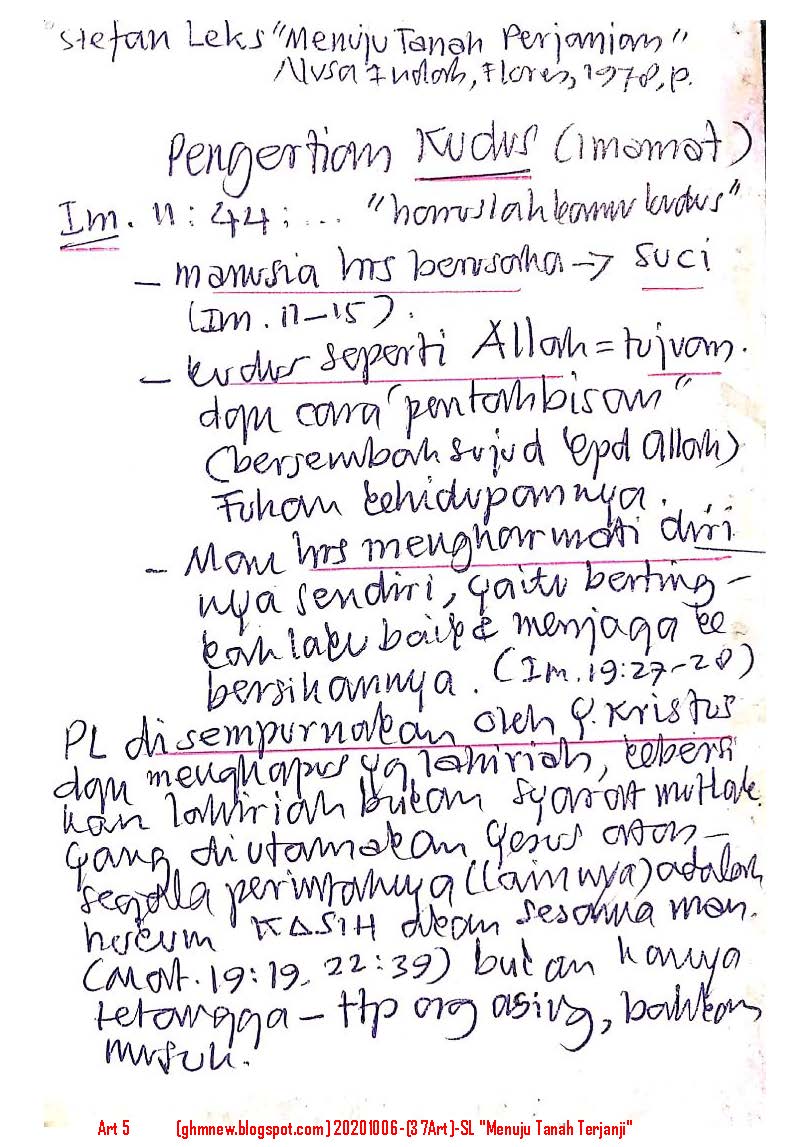 Stefan Leks "Menuju Tanah Perjanjian"
Nusa Indah, Flores, 1978, p.
Pengertian Kudus (Imamat)
Im. 11:44; ... "haruslah kamu kudus"
- manusia hrs berusaha → suci
(Im. 11-15).
- kudus seperti Allah = tujuan.
dgn cara "pentahbisan"
(bersembah sujud kpd Allah)
Tuhan kehidupannya.
- Man hrs menghormati diri
nya sendiri, yaitu berting-
kah laku baik & menjaga ke
bersihannya. (Im. 19:27-28)
PL disempurnakan oleh Y. Kristus
dgn menghapus yg lahiriah, kebersi
han lahiriah bukan syarat mutlak.
Yang diutamakan Yesus atas
segala perintahnya (lainnya) adalah
hukum KASIH akan sesama man.
(Mat. 19:19, 22:39) bukan hanya
tetangga - ttp org asing, bahkan
musuh.
Art 5 [ghmnew.blogspot.com] 20201006-[37Art]-SL "Menuju Tanah Terjanji"